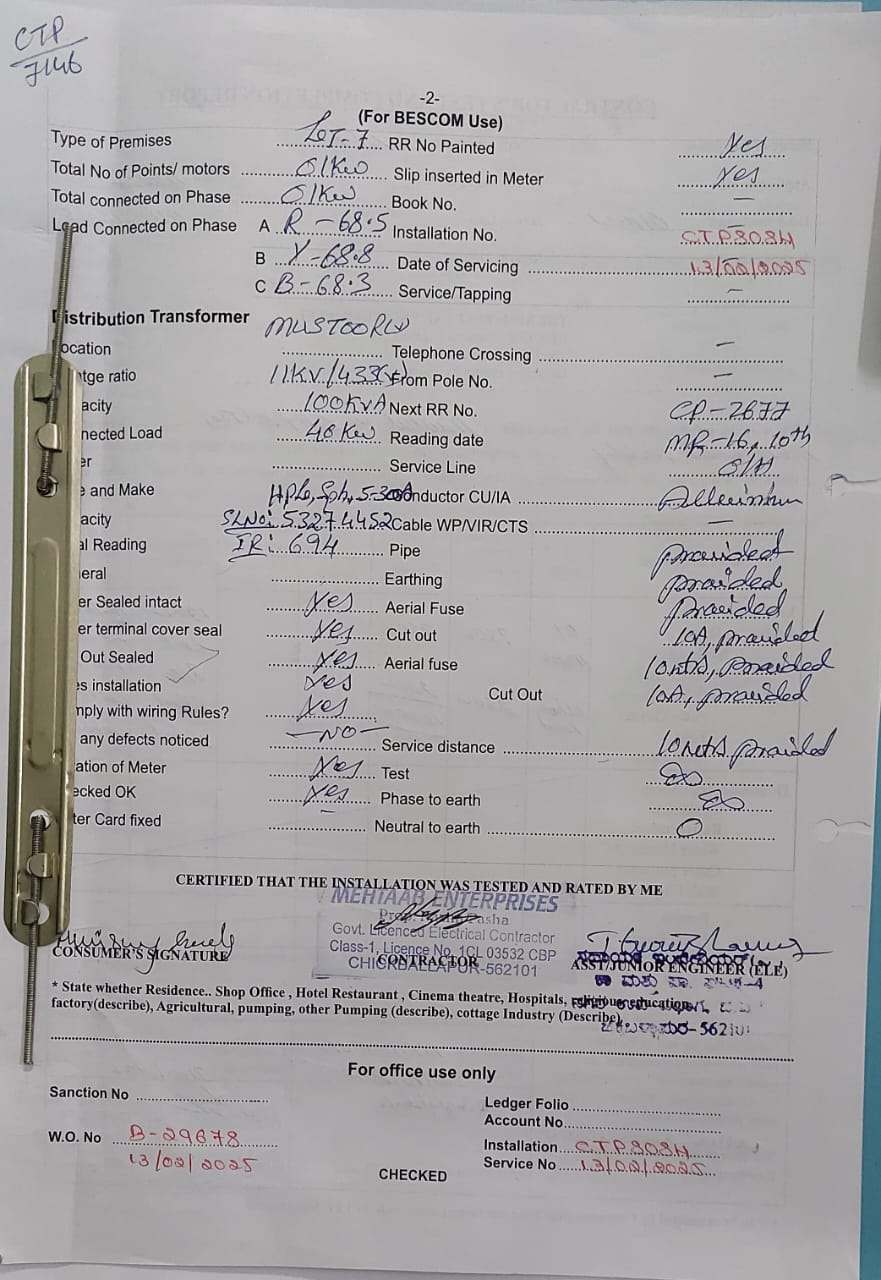 CTP
7146
-2-
(For BESCOM Use)
Type of Premises LT-7 RR No Painted Yes
Total No of Points/ motors 01KW Slip inserted in Meter Yes
Total connected on Phase 01KW Book No. —
Load Connected on Phase A R-68.5 Installation No. CTP808H
B Y-68.8 Date of Servicing 13/02/2025
C B-68.3 Service/Tapping —
Distribution Transformer MUSTOOR
ocation Telephone Crossing —
tge ratio 11KV/433 From Pole No. —
acity 100KVA Next RR No. CP-2677
nected Load 48 KW Reading date MR-16, 10th
er Service Line O/H
e and Make HPL, 3ph, 5-30A onductor CU/IA
acity SLNo: 53274452 Cable WP/VIR/CTS —
al Reading IR: 6.94 Pipe provided
eral Earthing provided
er Sealed intact Yes Aerial Fuse Provided
er terminal cover seal Yes Cut out 10A, provided
Out Sealed Yes Aerial fuse 10mtrs, provided
es installation Yes Cut Out 10A, provided
mply with wiring Rules? Yes
any defects noticed —NO— Service distance 10mtrs provided
ation of Meter Yes Test ∞
ecked OK Yes Phase to earth ∞
ter Card fixed — Neutral to earth 0
CERTIFIED THAT THE INSTALLATION WAS TESTED AND RATED BY ME
MEHTAAB ENTERPRISES
Govt. Licenced Electrical Contractor
Class-1, Licence No. 1CL 03532 CBP
CHICKBALLAPUR-562101
CONSUMER'S SIGNATURE CONTRACTOR ASST/JUNIOR ENGINEER (ELE)
* State whether Residence.. Shop Office , Hotel Restaurant , Cinema theatre, Hospitals, religious education,
factory(describe), Agricultural, pumping, other Pumping (describe), cottage Industry (Describe)
For office use only
Sanction No Ledger Folio
Account No
W.O. No B-29678 Installation CTP808H
13/02/2025 Service No 13/02/2025
CHECKED